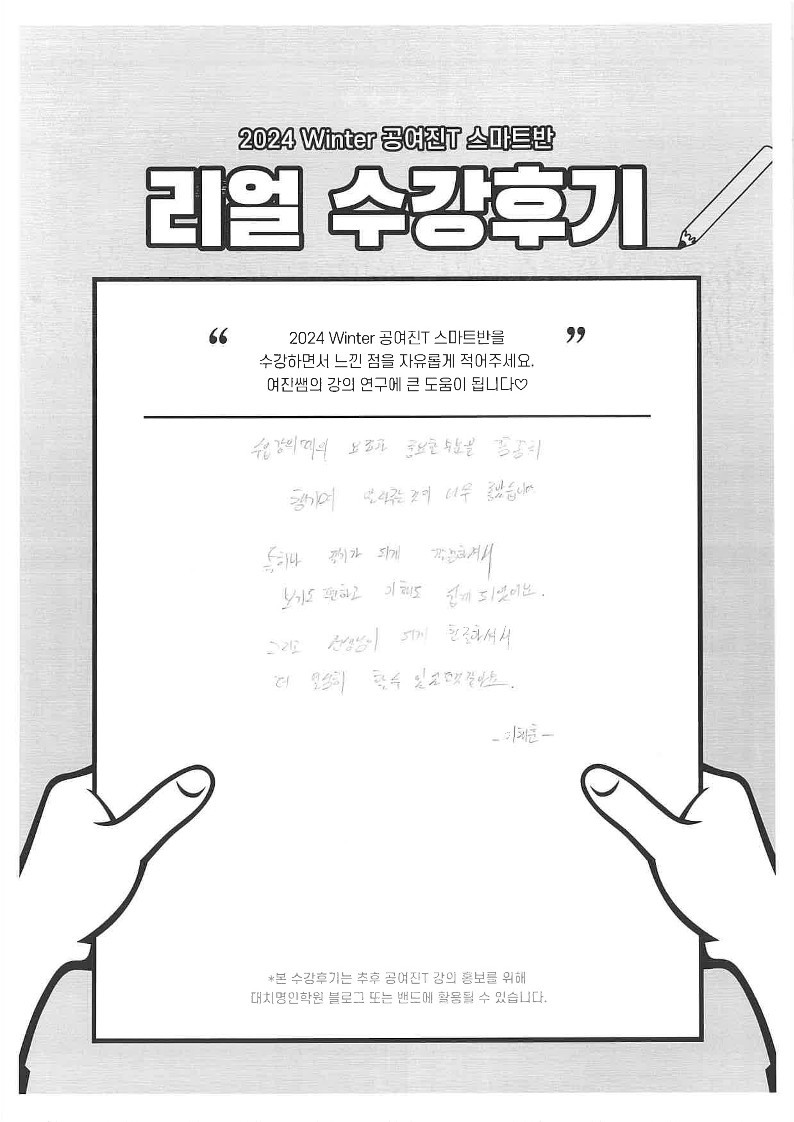 2024 Winter 공여진T 스마트반
리얼 수강후기
“ 2024 Winter 공여진T 스마트반을 ”
수강하면서 느낀 점을 자유롭게 적어주세요.
여진쌤의 강의 연구에 큰 도움이 됩니다♡
수업
너무 좋았습니다
되게 깔끔하셔서
보기도 편하고 이해도 쉽게 되었어요.
그리고 선생님이 되게
더 열심히 할 수 있었던 것 같아요.
*본 수강후기는 추후 공여진T 강의 홍보를 위해
대치명인학원 블로그 또는 밴드에 활용될 수 있습니다.